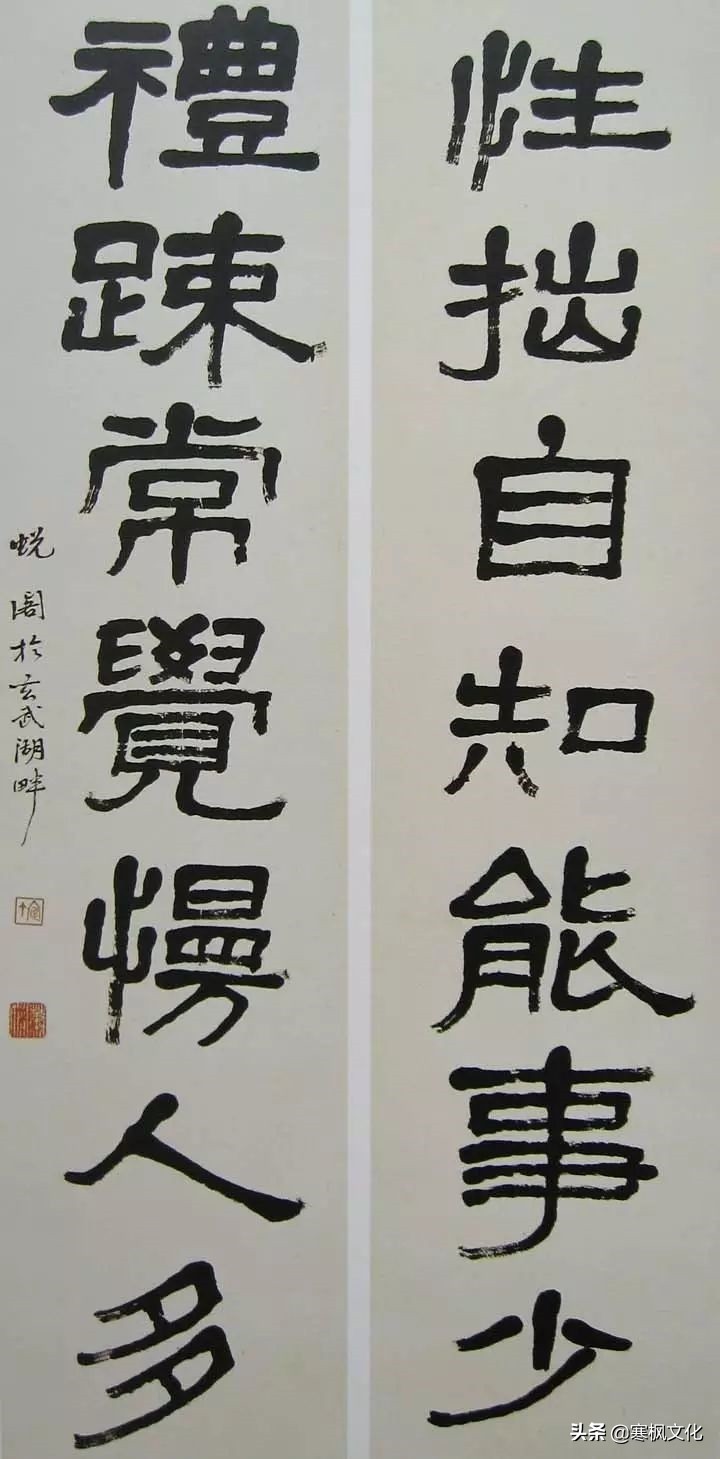 性拙自知能事少
禮踈常覺慢人多
蜕闇於玄武湖畔
头条@寒枫文化